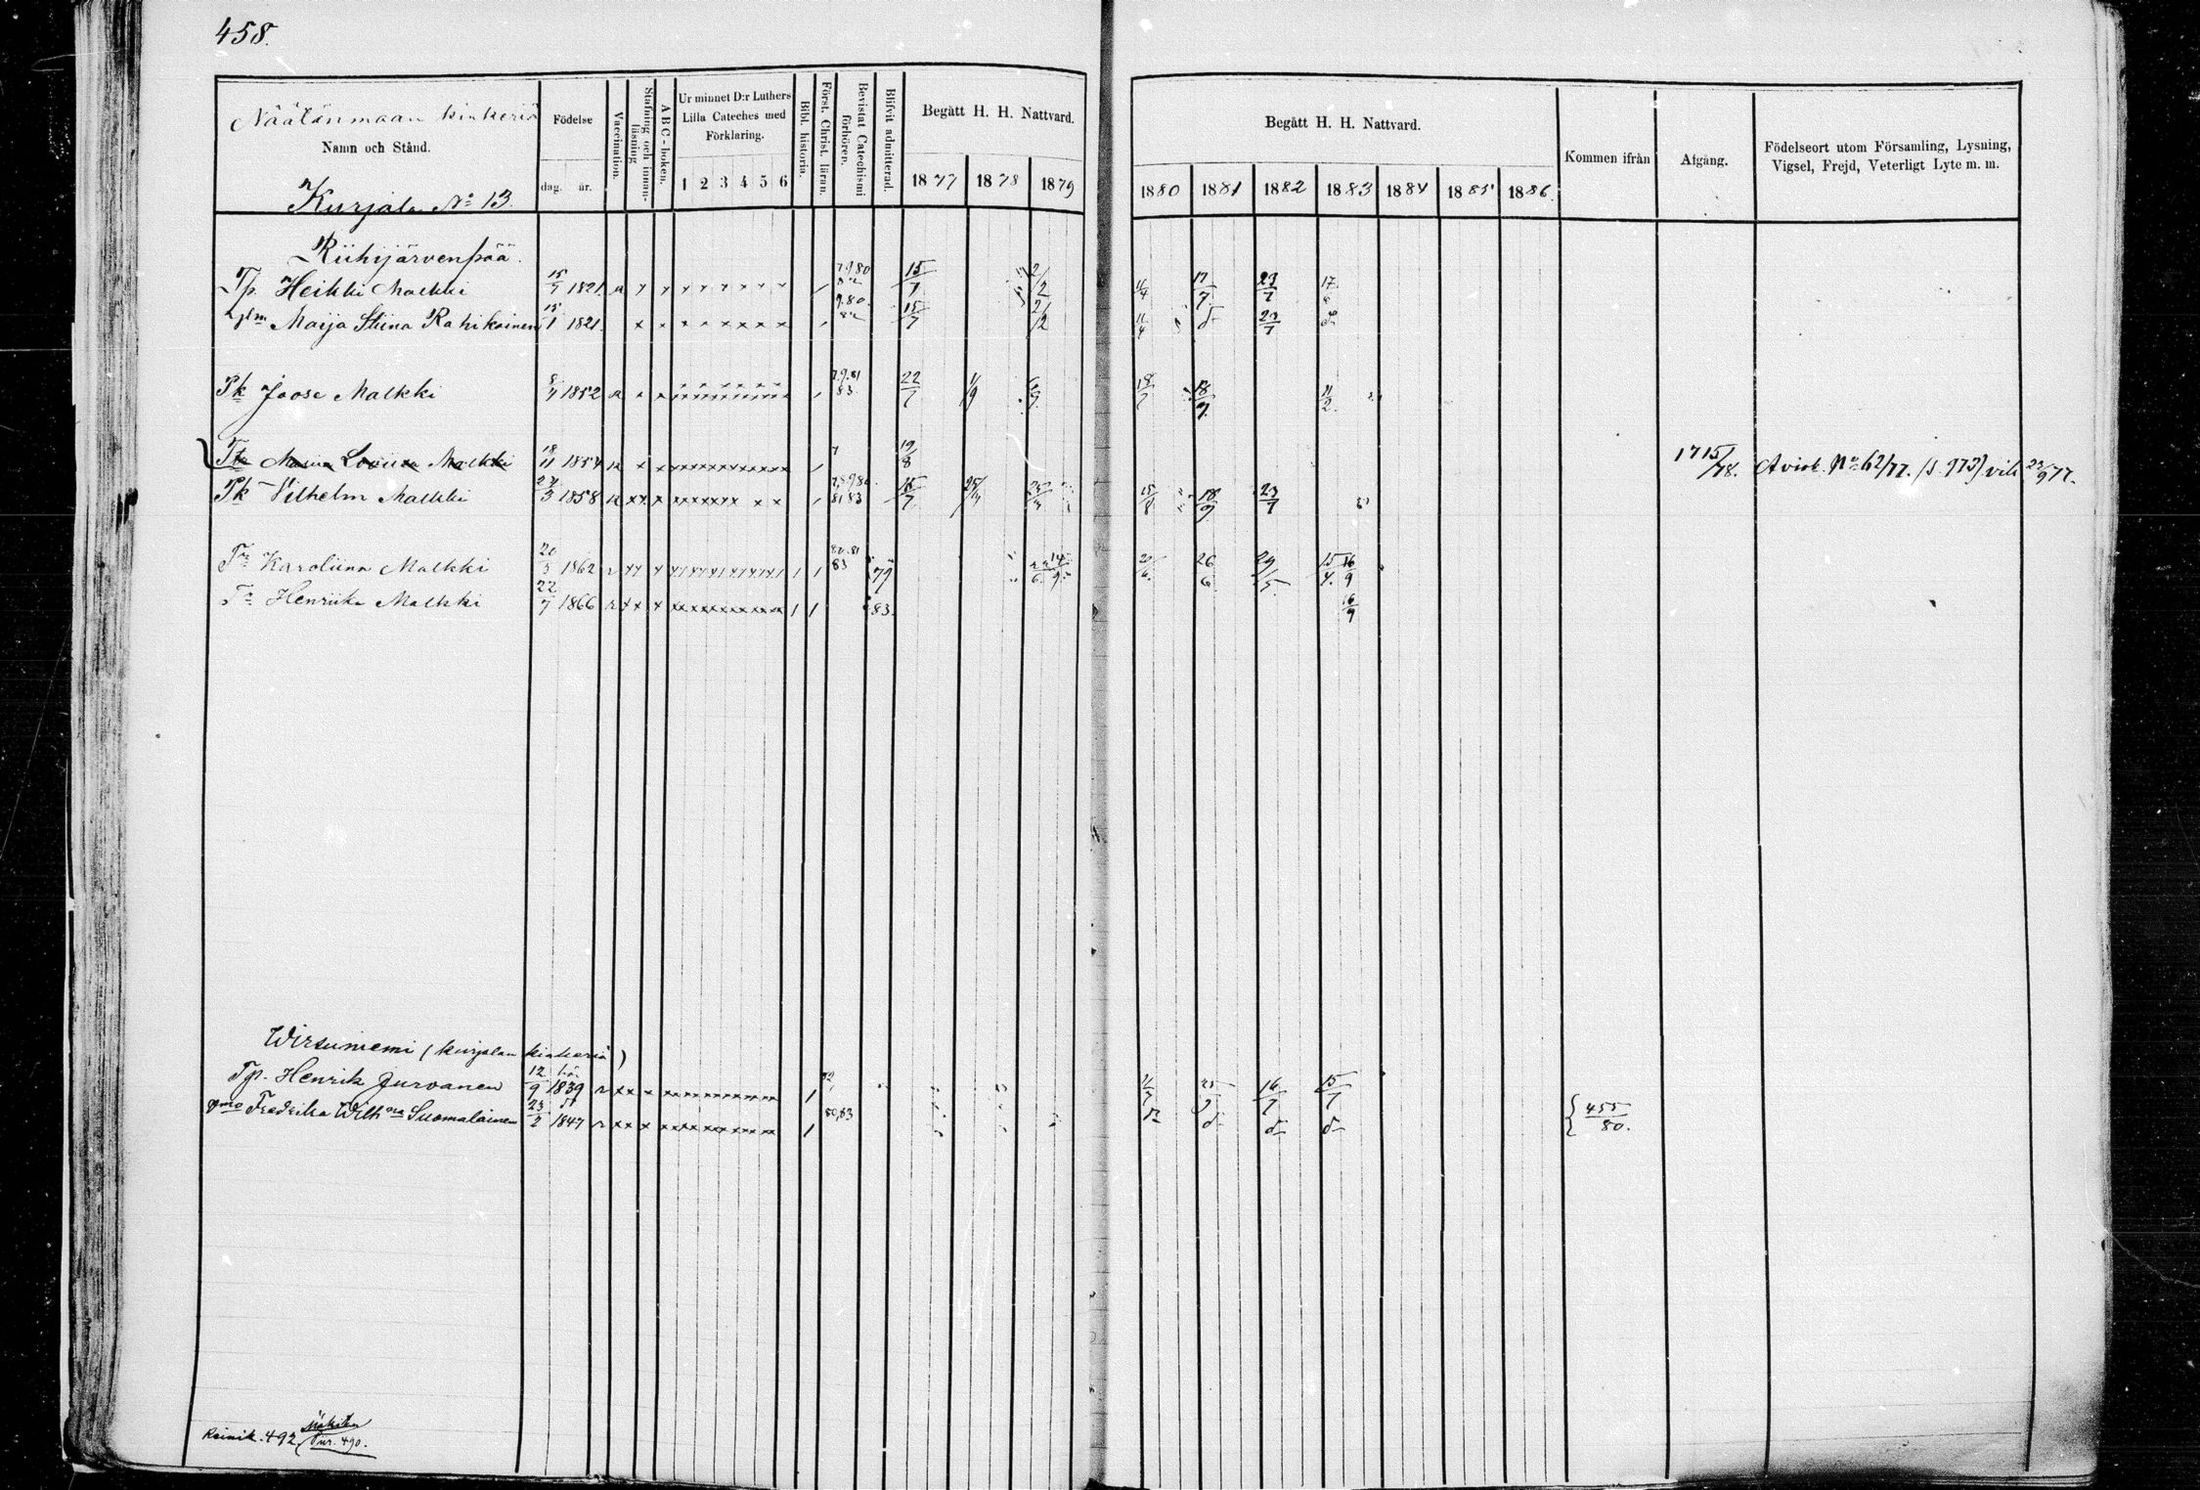 458.
Näätänmaan kinkeriä
Namn och Stånd.
Kurjala No 13.
Födelse
dag. år.
Vaccination.
Stafning och innan-läsning
ABC-boken.
Ur minnet D:r Luthers Lilla Cateches med Förklaring.
1 2 3 4 5 6
Bibl. historia.
Först. Christ. läran.
Bevistat Catechismi förhören.
Blifvit admitterad.
Begått H. H. Nattvard.
1877 1878 1879
Begått H. H. Nattvard.
1880 1881 1882 1883 1884 1885 1886.
Kommen ifrån
Afgång.
Födelseort utom Församling, Lysning, Vigsel, Frejd, Veterligt Lyte m. m.
Riihijärvenpää.
Tp. Heikki Malkki 15/7 1821 15/7 2/12 11/4 17/7 23/7 17
Maija Stiina Rahikainen 15/1 1821 15/7 2/12 11/4 do 23/7 do
Pk Joose Malkki 8/4 1852 79.81 83 22/7 1/9 18/7 18/9 11/2
Tr Maria Loviisa Malkki 18/11 1854 19/8 1715/78. Aviok. No 62/77. (S. 973) vih 23/9 77.
Pk Vilhelm Malkki 27/3 1858 81 83 15/7 15/8 18/9 23/7
Tr Karoliina Malkki 20/5 1862 80.81 83 79 26/6 29/5 15/4 16/9
Tr Henriika Malkki 22/7 1866 83 16/9
Wirsuniemi (Kurjalan kinkeriä)
Tp. Henrik Jurvanen 12/9 1839 16/7 15/7
Fredrika Wilhna Suomalainen 23/2 1847 80,83 do do do do 455/80.
Reinik. 492
490.